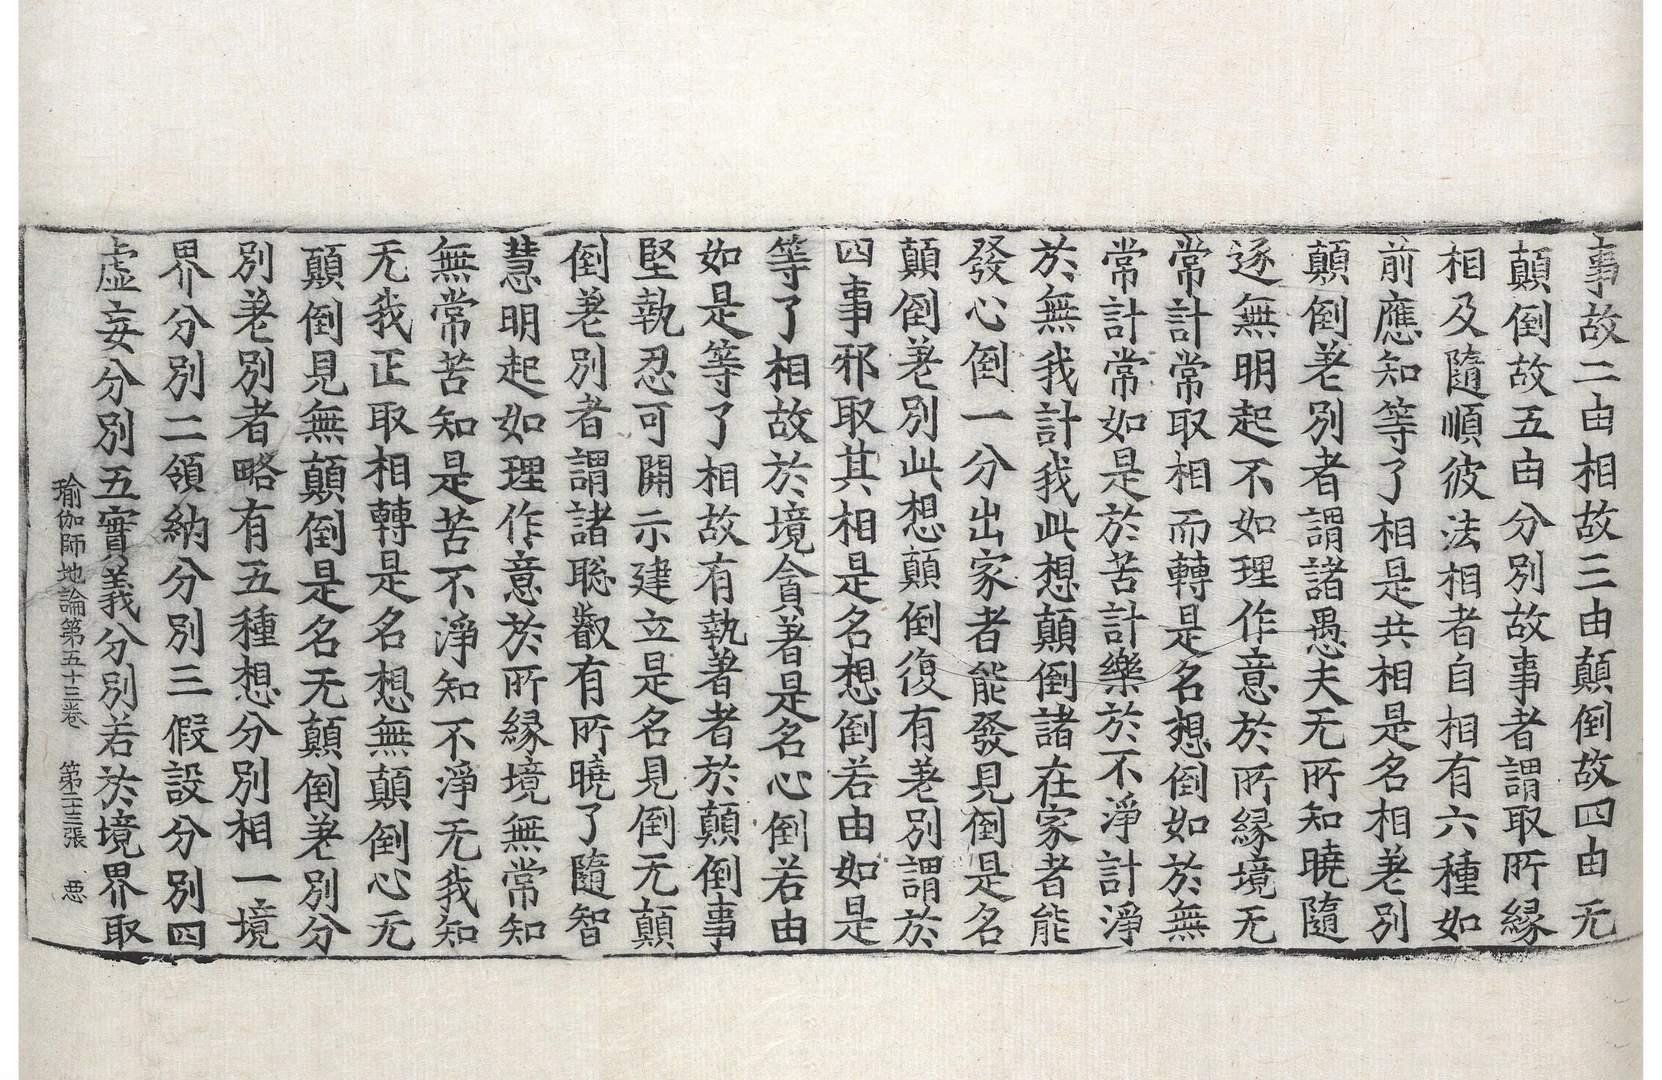 事故二由相故三由顛倒故四由无
顛倒故五由分別故事者謂取所緣
相及隨順彼法相者自相有六種如
前應知等了相是共相是名相差別
顛倒差別者謂諸愚夫无所知曉隨
逐無明起不如理作意於所緣境无
常計常取相而轉是名想倒如於無
常計常如是於苦計樂於不淨計淨
於無我計我此想顛倒諸在家者能
發心倒一分出家者能發見倒是名
顛倒差別此想顛倒復有差別謂於
四事邪取其相是名想倒若由如是
等了相故於境貪著是名心倒若由
如是等了相故有執著者於顛倒事
堅執忍可開示建立是名見倒无顛
倒差別者謂諸聡叡有所曉了隨智
慧明起如理作意於所緣境無常知
無常苦知是苦不淨知不淨无我知
无我正取相轉是名想無顛倒心无
顛倒見無顛倒是名无顛倒差別分
別差別者略有五種想分別相一境
界分別二領納分別三假設分別四
虛妄分別五實義分別若於境界取
瑜伽師地論第五十三卷　第二十三張　惡